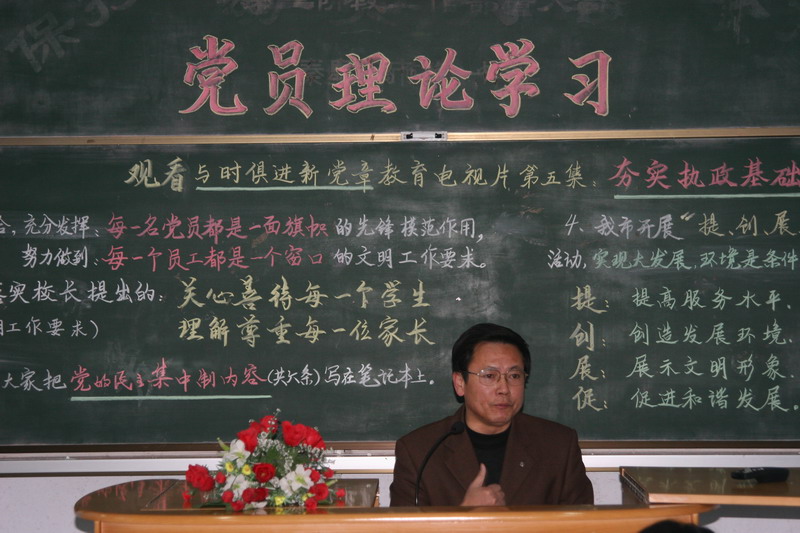 党员理论学习
观看与时俱进新党章教育电视片第五集：夯实执政基础
充分发挥：每一名党员都是一面旗帜的先锋模范作用，
努力做到：每一个员工都是一个窗口的文明工作要求。
实校长提出的：关心善待每一个学生
理解尊重每一位家长
工作要求）
大家把党的民主集中制内容（共六条）写在笔记本上。
4、我市开展“提、创、展、
活动，实现大发展，环境是条件
提：提高服务水平、
创：创造发展环境、
展：展示文明形象、
促：促进和谐发展。